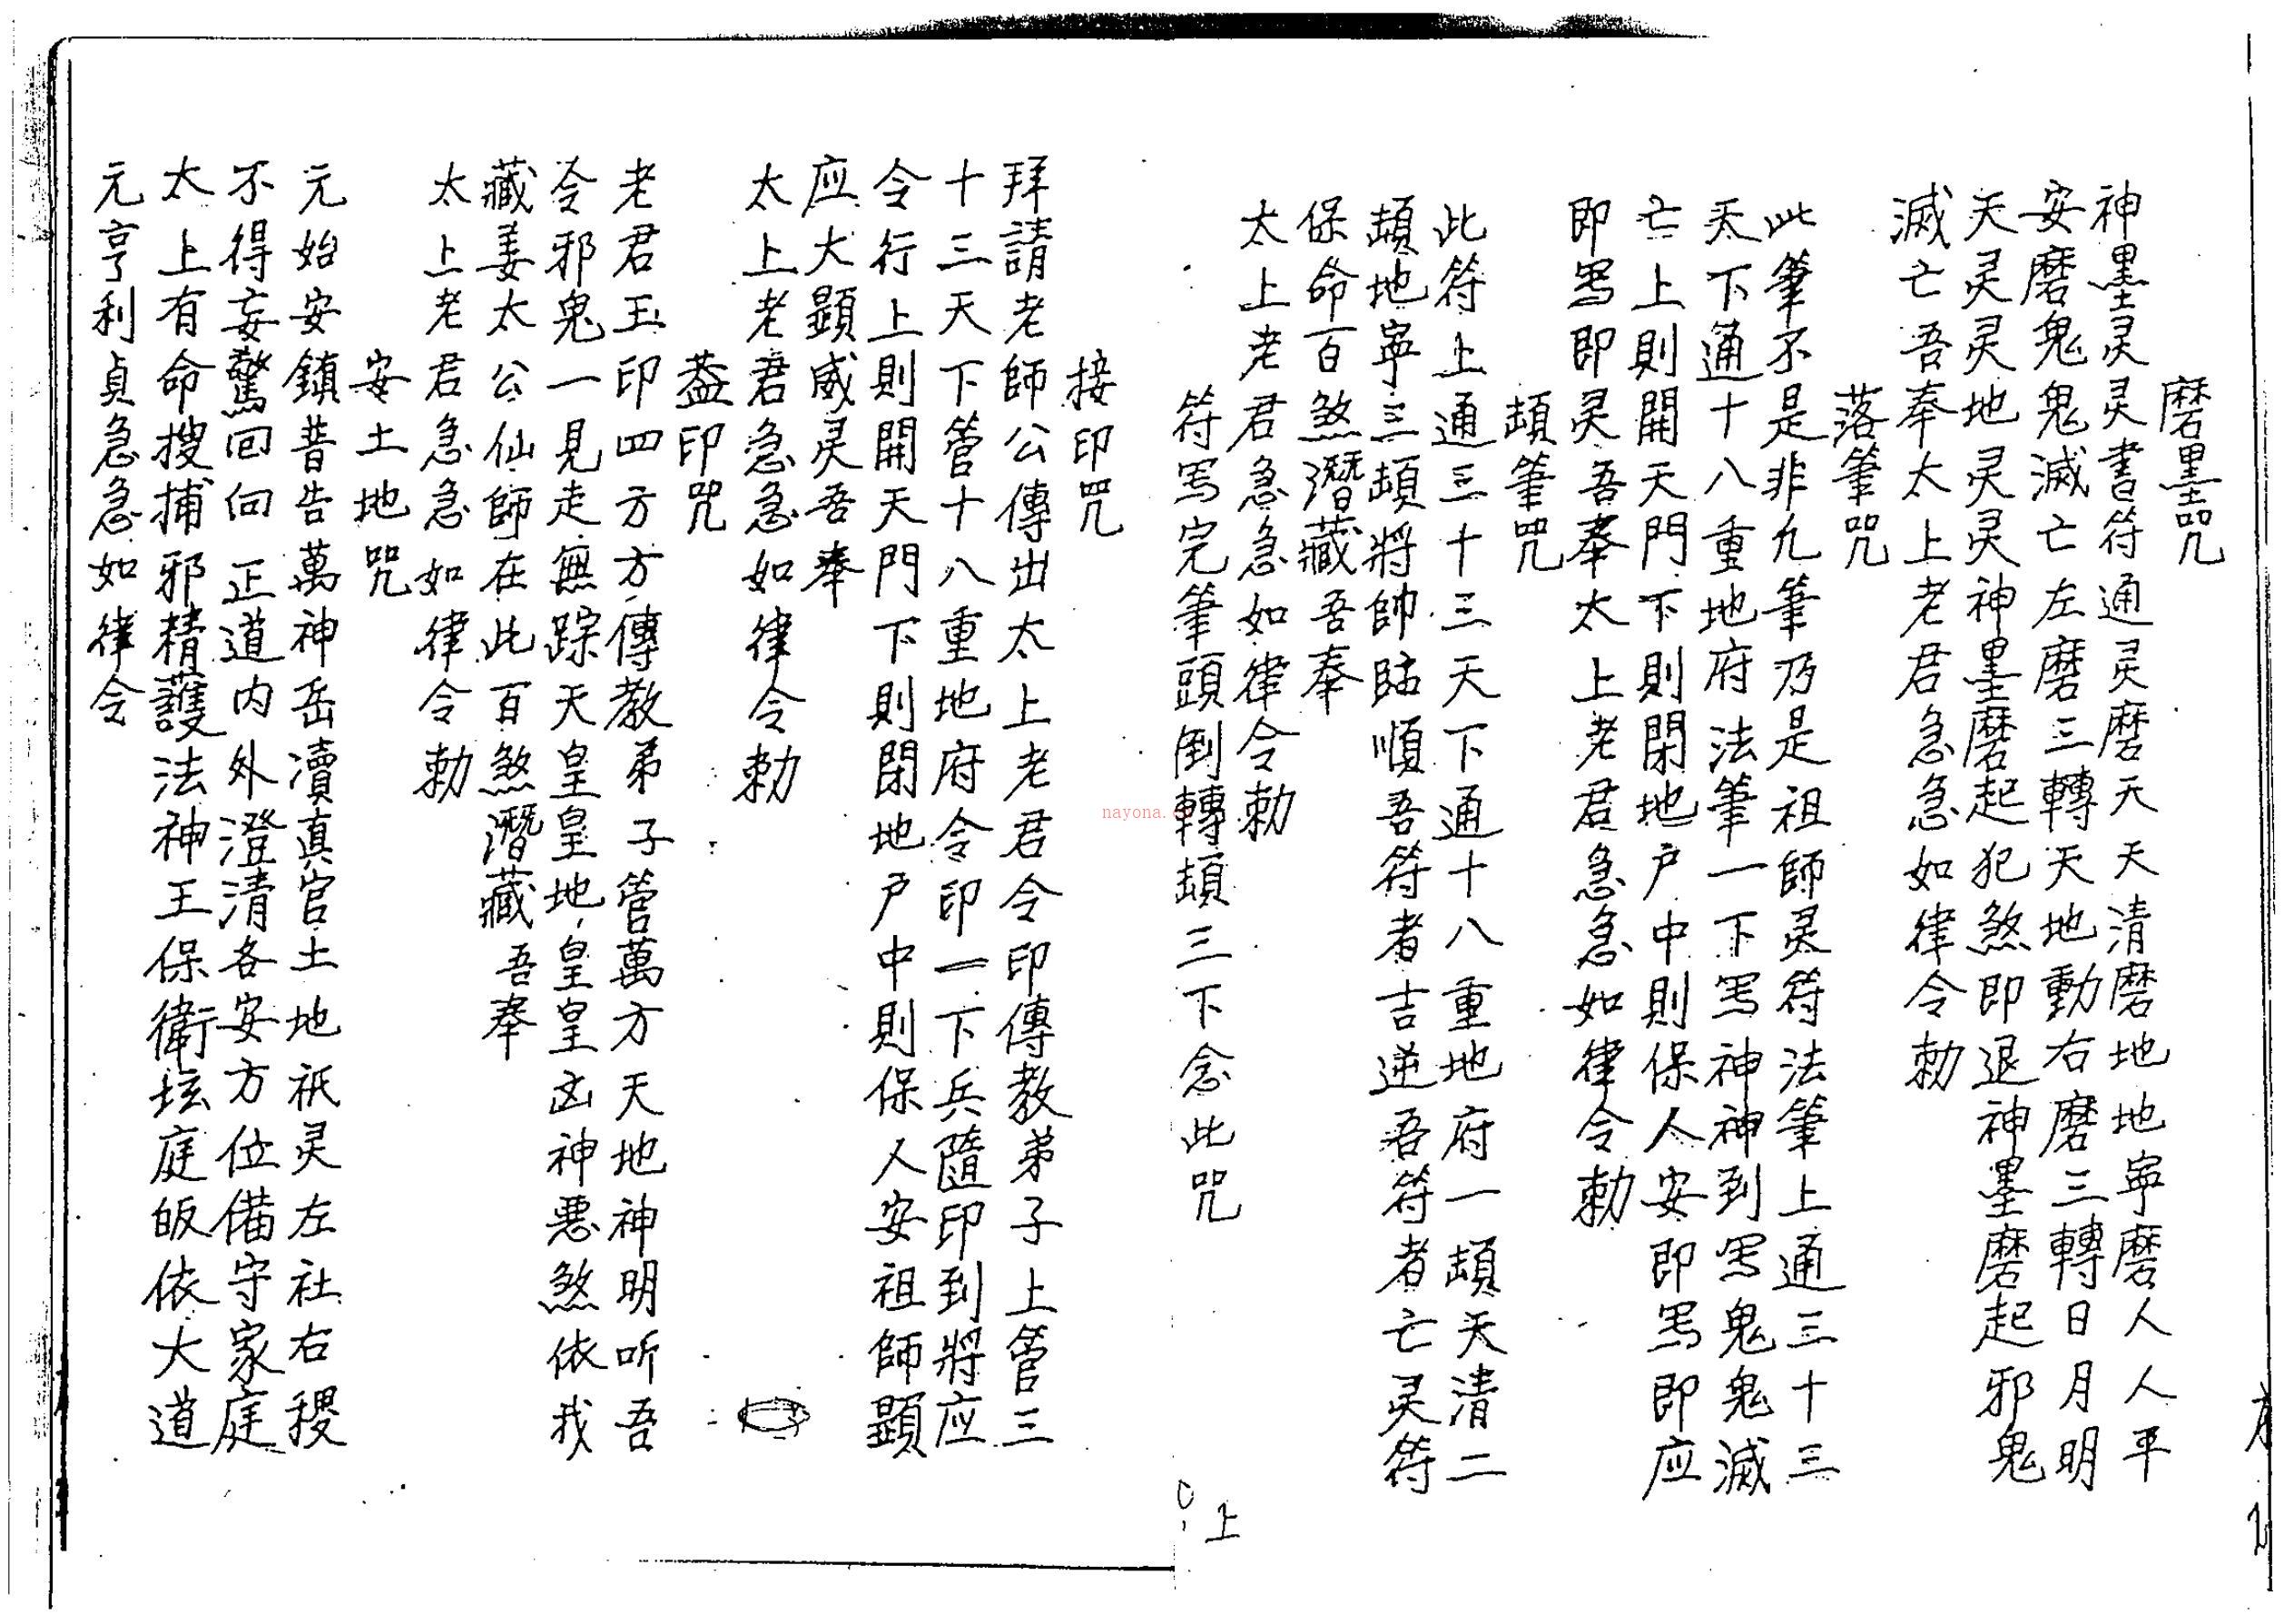 磨墨咒
神墨灵灵書符通灵磨天天清磨地地寧磨人人平
安磨鬼鬼滅亡左磨三轉天地動右磨三轉日月明
天灵灵地灵灵神墨磨起犯煞即退神墨磨起邪鬼
滅亡吾奉太上老君急急如律令勅
落筆咒
此筆不是非凡筆乃是祖師灵符法筆上通三十三
天下通十八重地府法筆一下写神神到写鬼鬼滅
亡上則開天門下則閉地户中則保人安即写即应
即写即灵吾奉太上老君急急如律令勅
頓筆咒
此符上通三十三天下通十八重地府一頓天清二
頓地寧三頓將帥臨順吾符者吉逆吾符者亡灵符
保命百煞潛藏吾奉
太上老君急急如律令勅
符写完筆頭倒轉頓三下念此咒
上
接印咒
拜請老師公傳出太上老君令印傳教弟子上管三
十三天下管十八重地府令印一下兵隨印到將应
令行上則開天門下則閉地户中則保人安祖師顕
应大顕威灵吾奉
太上老君急急如律令勅
葢印咒
老君玉印四方方傳教弟子管萬方天地神明听吾
令邪鬼一見走無踪天皇皇地皇皇凶神惡煞依我
藏姜太公仙師在此百煞潛藏吾奉
太上老君急急如律令勅
安土地咒
元始安鎮昔告萬神岳瀆真官土地祇灵左社右稷
不得妄驚回向正道内外澄清各安方位備守家庭
太上有命搜捕邪精護法神王保衛坛庭皈依大道
元亨利貞急急如律令
nayona.